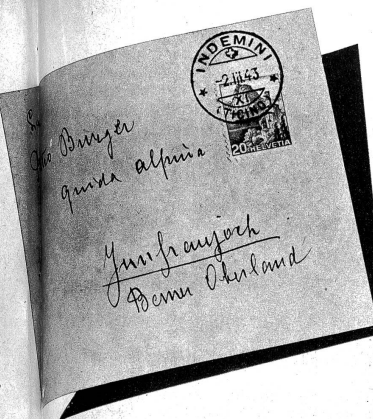 INDEMINI
-2.III.43
XI
(TICINO)
20 HELVETIA
Burger
guida alpina
Jungfraujoch
Berner Oberland